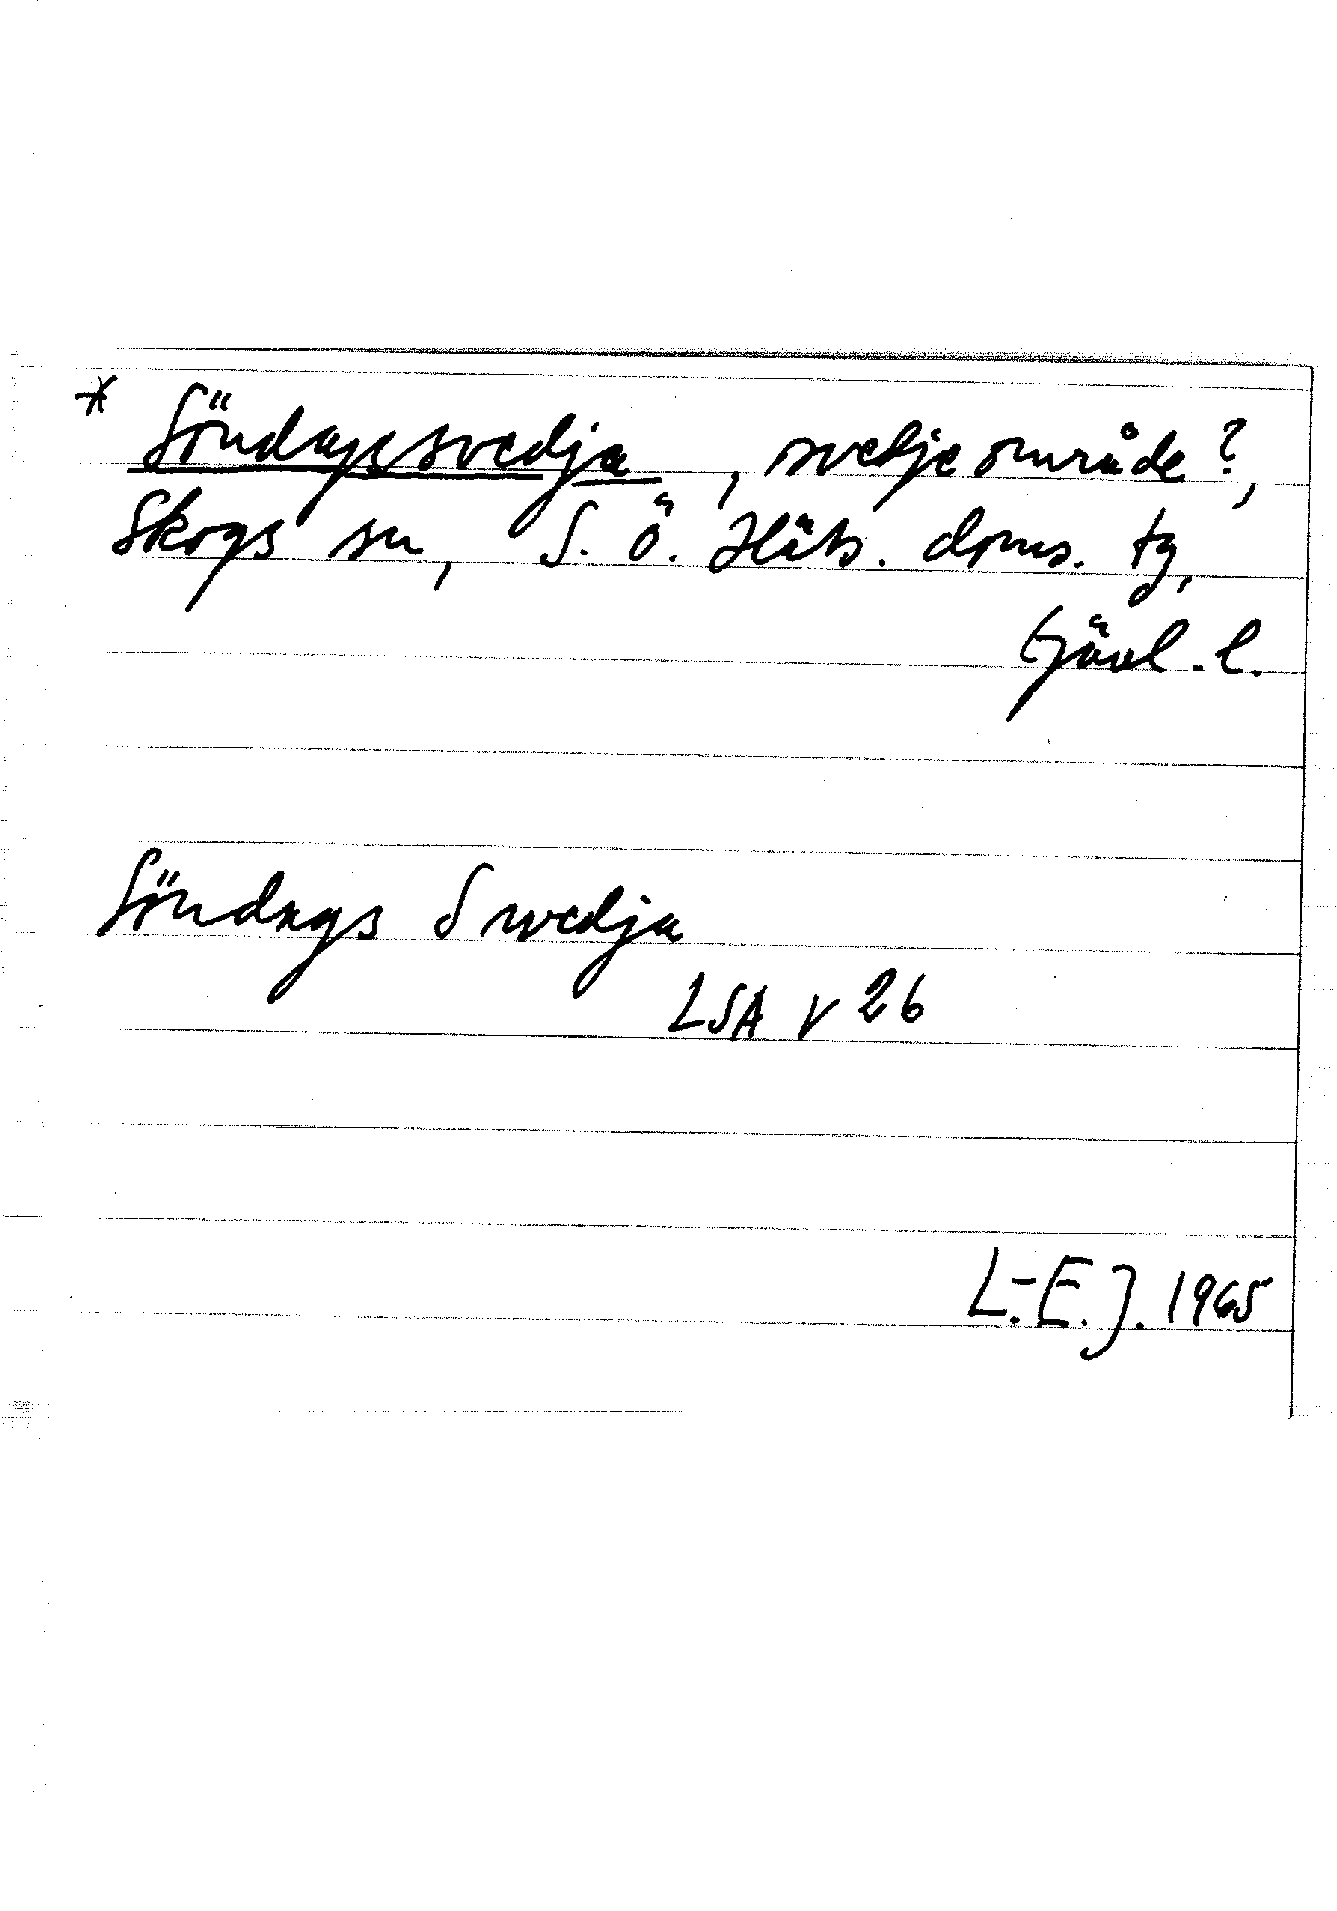 * Söndagssvedja, svedjeområde?,
Skogs sn, S. Ö. Häls. doms. tg,
Gävl. l.
Söndags Swedja
LSA V 26
L.-E. J. 1965